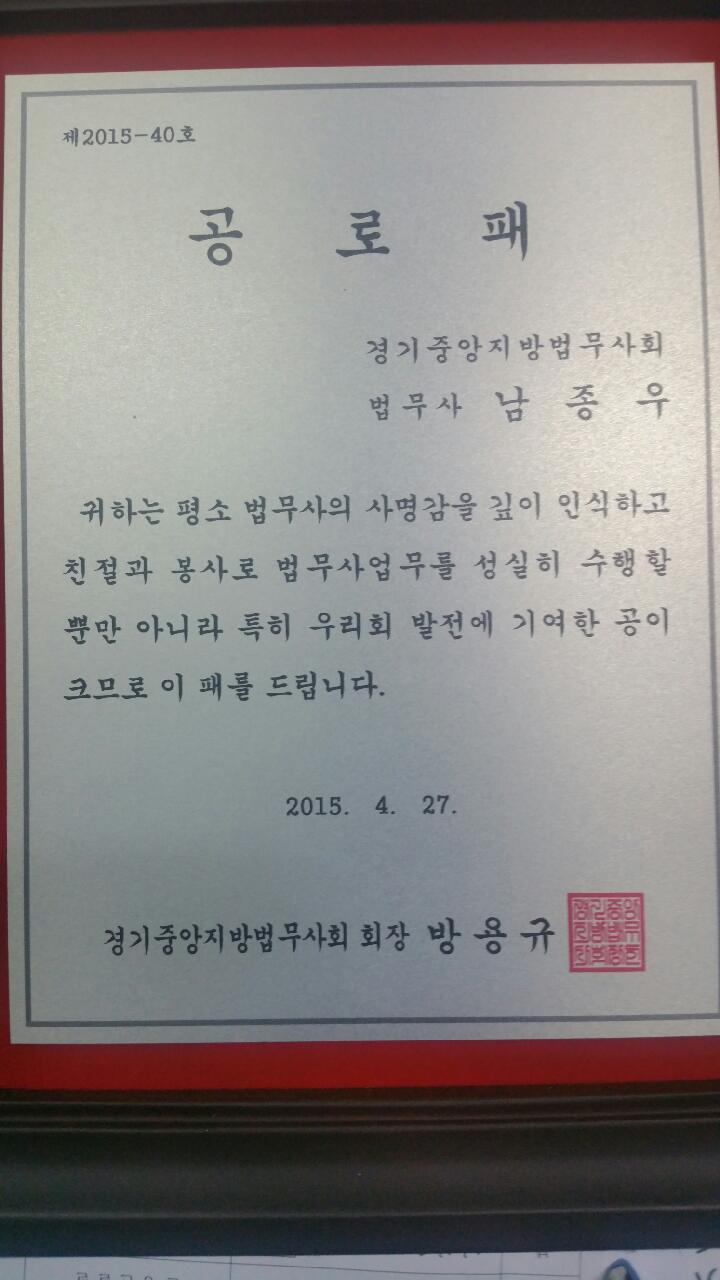 제2015-40호
공 로 패
경기중앙지방법무사회
법무사 남 종 우
귀하는 평소 법무사의 사명감을 깊이 인식하고
친절과 봉사로 법무사업무를 성실히 수행할
뿐만 아니라 특히 우리회 발전에 기여한 공이
크므로 이 패를 드립니다.
2015. 4. 27.
경기중앙지방법무사회 회장 방 용 규